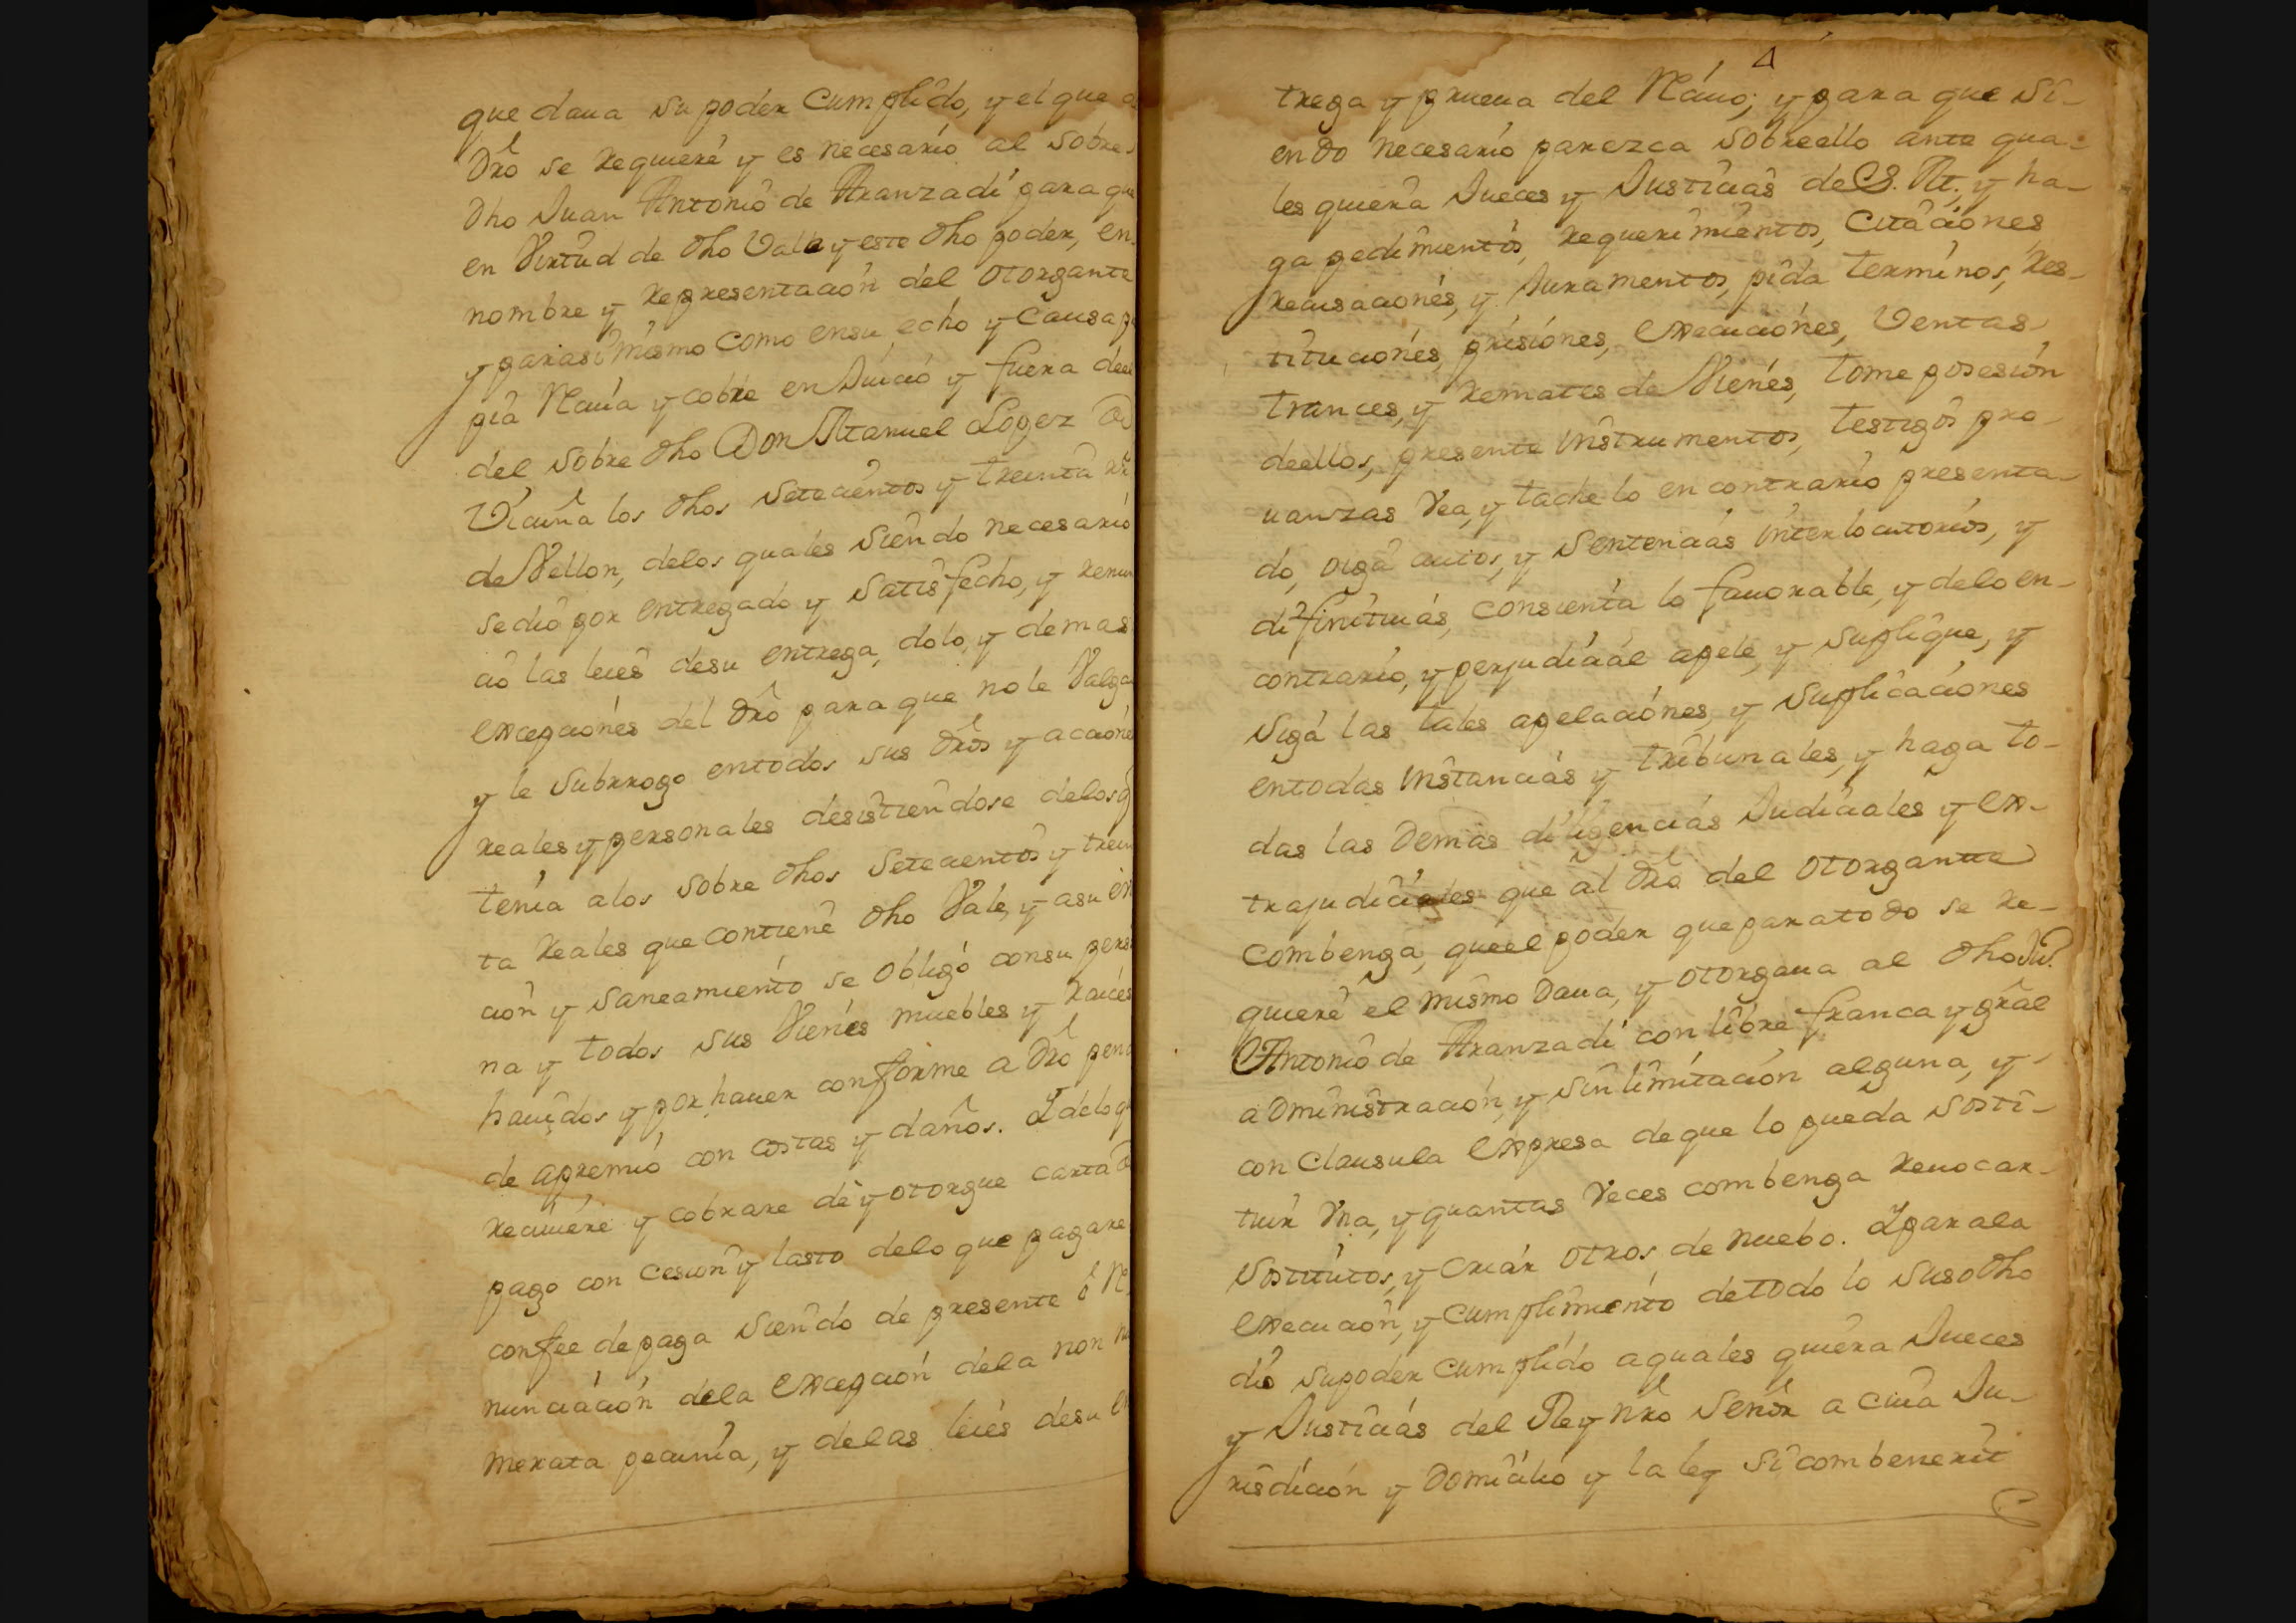 que daua su poder Cumplido, y el que
dro se requiere y es necesario al sobre
dho Juan Antonio de Aranzadi para que
en Virtud de dho Vale y este dho poder, en
nombre y representacion del otorgante
y parasi mismo como ensu echo y Causa
pia Reciua y cobre en Juicio y fuera
del sobre dho Don Manuel Lopez
Vicuña los dhos Setecientos y treinta rs
de Vellon, delos quales siendo necesario
sedio por entregado y satisfecho, y renun
cio las leies desu entrega, dolo, y demas
excepciones del dro para que no le Valga
y le subrrogo entodos sus dros y accione
reales y personales desistiendose delos
tenia alos sobre dhos Setecientos y trein
ta Reales que contiene dho Vale, y asu
cion y saneamiento se obligó consu perso
na y todos sus Vienes muebles y raices
hauidos y por hauer conforme a dro pena
de apremio con costas y daños. Y delo q
reciuiere y cobrare dè y otorgue carta
pago con cesion y lasto delo que pagare
confee de paga siendo de presente ó
nunciacion dela excepcion dela non
merata pecunia, y delas leies desu
4
trega y prueua del Reciuo; y para que si-
endo necesario parezca sobreello ante qua-
les quiera Jueces y Justicias de S. M. y ha-
ga pedimientos, requerimientos, Citaciones
recusaciones, y Juramentos, pida terminos, res-
tituciones, prisiones, execuciones, Ventas
trances, y remates de Vienes, tome posesion
deellos, presente instrumentos, testigos pro-
uanzas Vea, y tache lo en contrario presenta-
do, oiga autos, y Sentencias interlocutorios, y
difinitiuas, consienta lo fauorable, y delo en-
contrario, y perjudicial apele, y suplique, y
siga las tales apelaciones, y suplicaciones
entodas instancias y tribunales, y haga to-
das las demas diligencias Judiciales y ex-
trajudiciales que al dro del otorgante
combenga, queel poder que paratodo se re-
quiere el mismo daua, y otorgaua al dho Jun.
Antonio de Aranzadi con libre franca y gral
administracion, y sin limitacion alguna, y
con Clausula expresa deque lo pueda sosti-
tuir Vna, y quantas Veces combenga reuocar
sostitutos, y criar otros de nuebo. Y para la
execucion, y cumplimiento detodo lo susodho
dió supoder cumplido aquales quiera Jueces
y Justicias del Rey nro Señor a cuia Ju-
risdicion y domicilio y la ley si combenerit